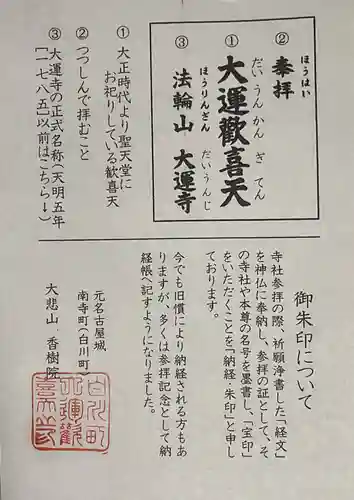 ほうはい
②奉拝
だいうんかんぎてん
①大運歡喜天
ほうりんざん だいうんじ
③法輪山 大運寺
①大正時代より聖天堂に
お祀りしている歓喜天
②つつしんで拝むこと
③大運寺の正式名称(天明五年
[一七八五]以前はこちら↓)
御朱印について
寺社参拝の際、祈願浄書した「経文」
を神仏に奉納し、参拝の証として、そ
の寺社や本尊の名号を墨書し、「宝印」
をいただくことを「納経・朱印」と申し
ております。
今でも旧慣により納経される方もあ
りますが、多くは参拝記念として納
経帳へ記すようになりました。
元名古屋城
南寺町(白川町)
大悲山 香樹院
白川町
大運歡
喜天